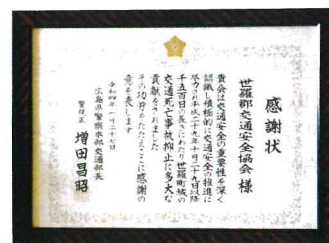 感謝状
世羅郡交通安全協会 様
貴会は交通安全の重要性を深く
認識し積極的に交通安全の推進に
尽力され平成二十九年十月二十九日以降
千五百日の長きにわたり世羅町域の
交通死亡事故抑止に多大な
貢献をされました
その功労をたたえここに感謝の
意を表します
令和四年一月二十七日
広島県警察本部交通部長
警視正 増田昌昭